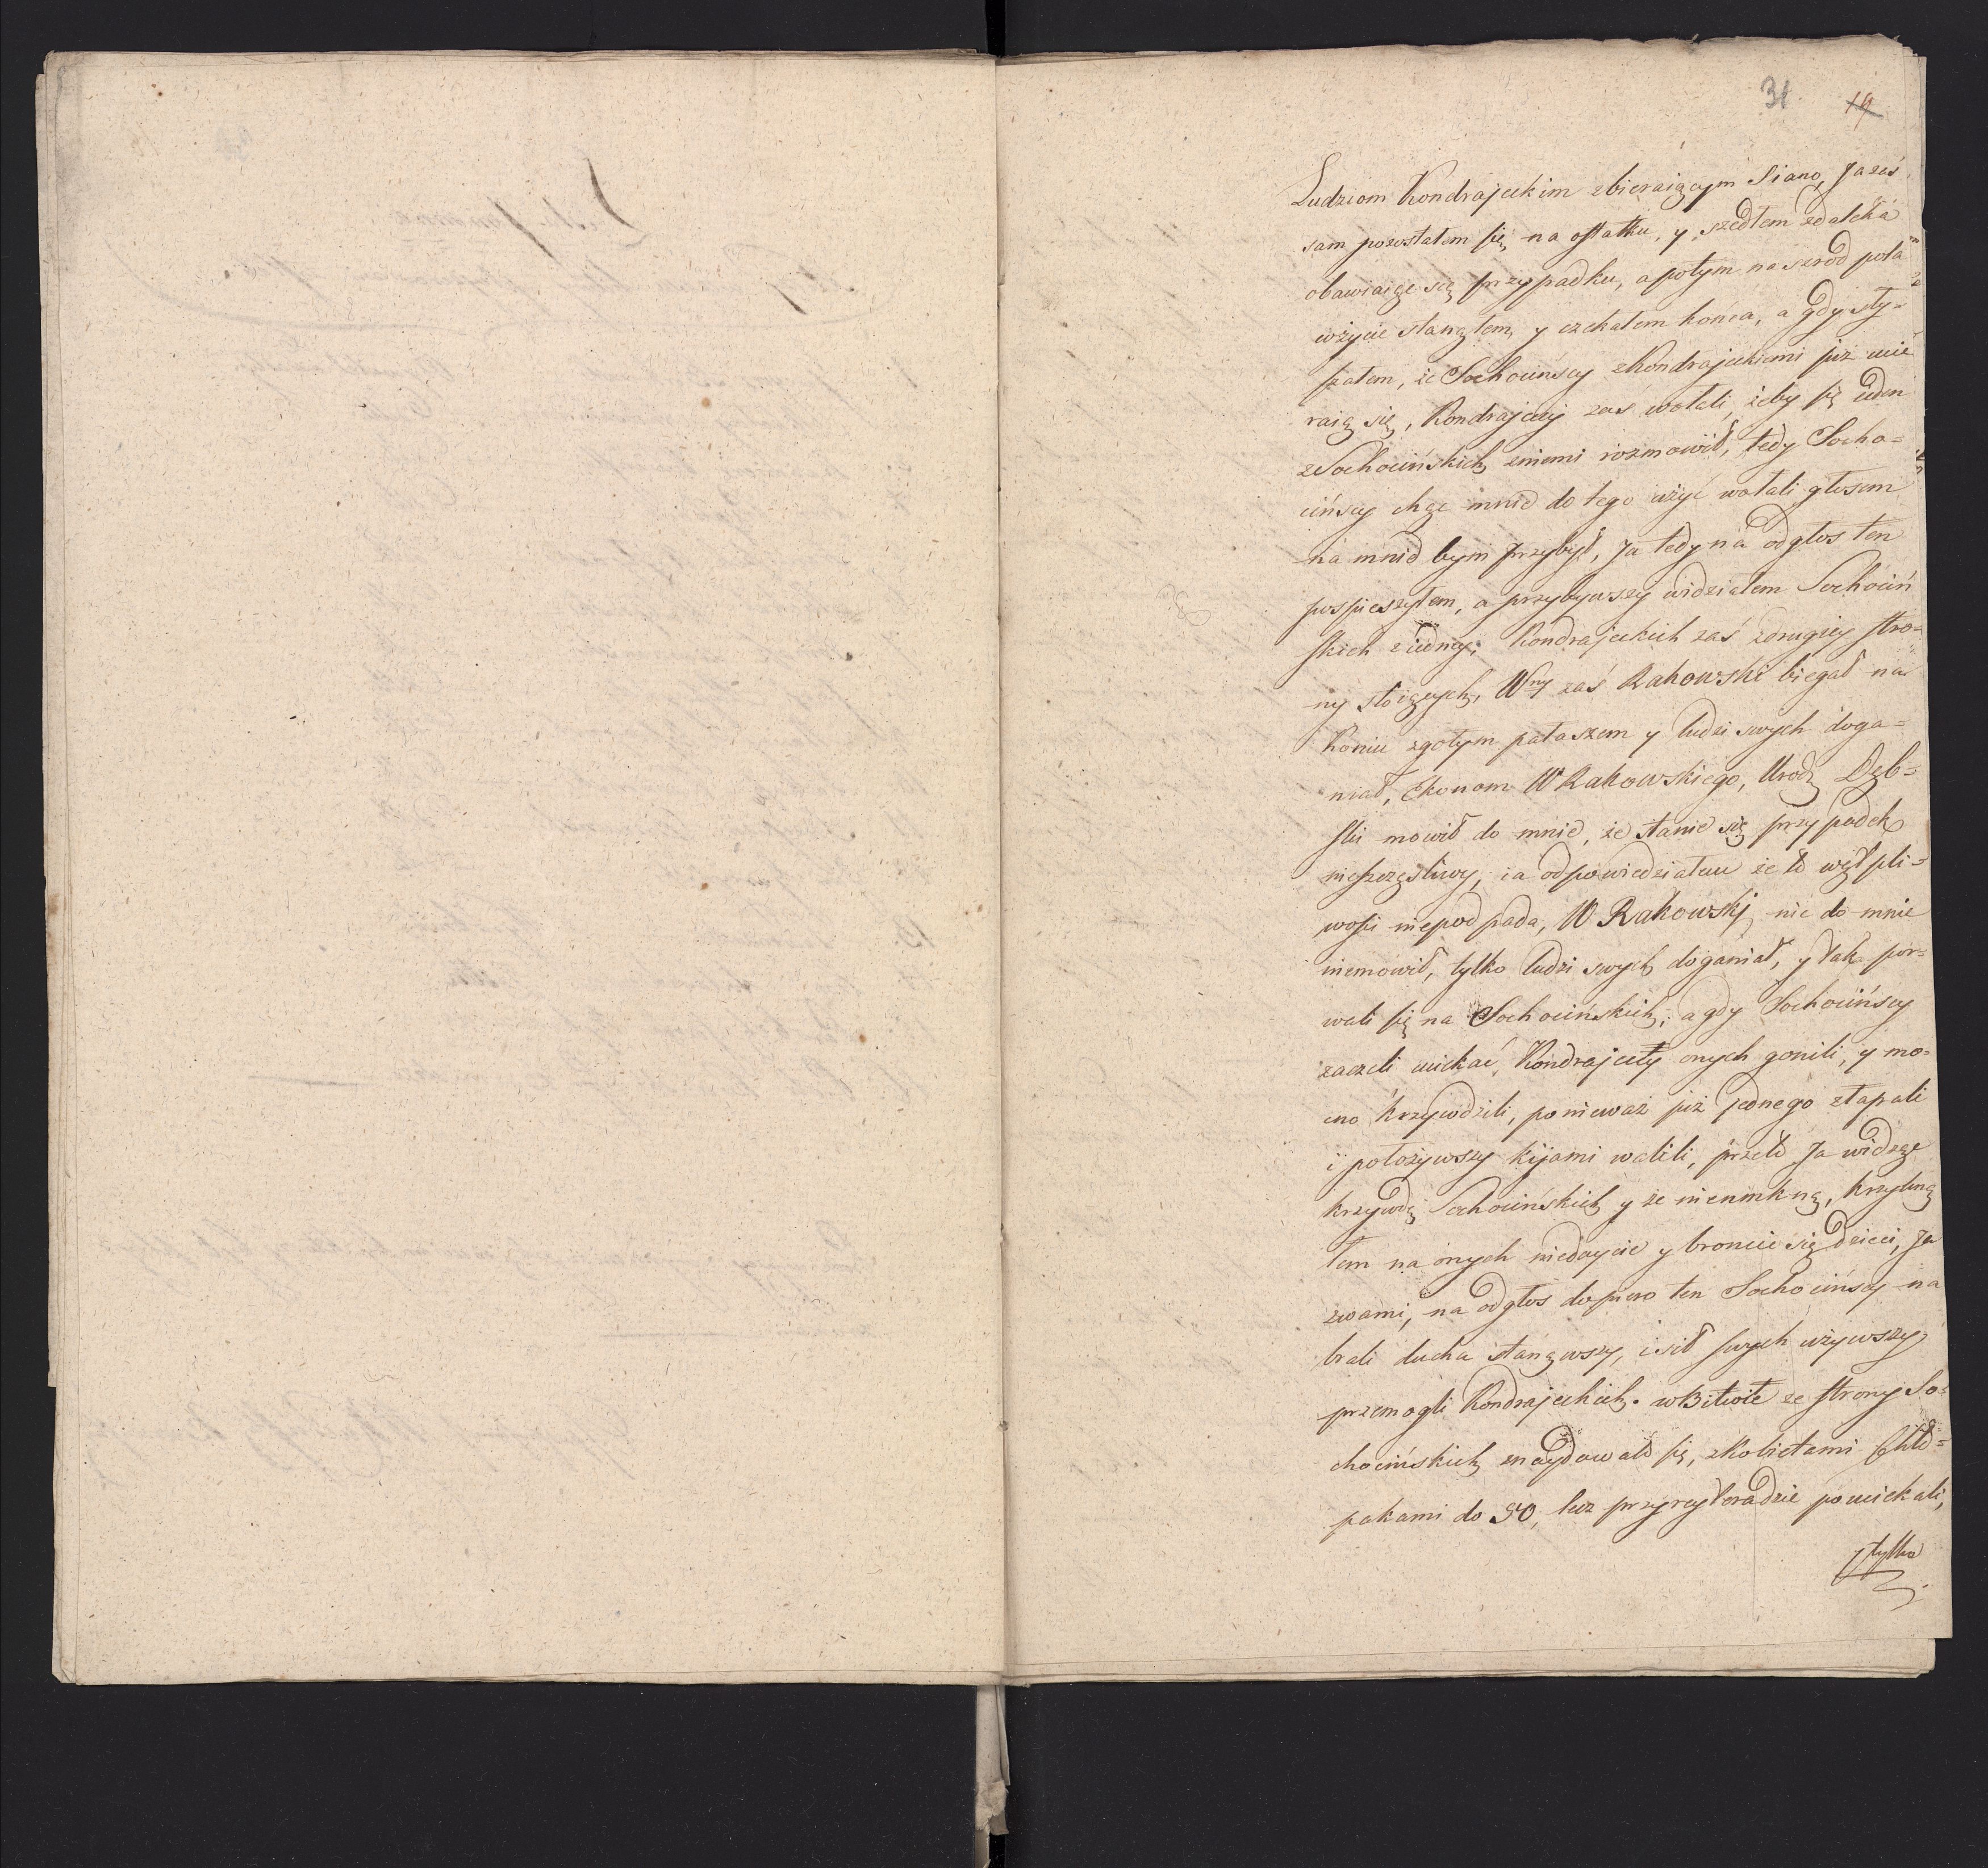 31. 19
Ludziom Kondrajeckim zbieraiącym Siano, Ja zaś
sam pozostałem się na ostatku, y szedłem zdaleka
obawiaiąc się przypadku, a potym naszrod pola
wżycie stanąłem, y czekałem końca, a gdy sły=
szałem, że Sochocińscy z Kondrajeckiemi już ucie
raią się, Kondrajeccy zas wołali, żeby się ieden
z Sochocińskich zniemi rozmowił, tedy Socho=
cińscy chcąc mnie do tego użyć wołali głosem
na mnie bym przybył, Ja tedy na odgłos ten
pospieszyłem, a przybywszy widziałem Sochociń
skich ziedney, Kondrajeckich zaś zdrugiey stro=
ny stoiących, Wny zaś Rakowski biegał na
Koniu zgołym pałaszem y ludzi swych doga=
niał, Ekonom W Rakowskiego, Urodz Dęb=
ski mowił do mnie, że stanie się przypadek
nieszczęśliwy, ia odpowiedziałem że to wątpli=
wości niepodpada, W Rakowski nic do mnie
niemowił, tylko ludzi swych doganiał, y tak por=
wali się na Sochocińskich, a gdy Sochocińscy
zaczeli uciekać, Kondrajeccy onych gonili, y mo=
cno krzywdzili, ponieważ już jednego złapali
i położywszy kijami walili, przeto Ja widząc
krzywdę Sochocińskich y że nieumkną, krzykną
łem na onych niedaycie y broncie się dzieci, Ja
zwami, na odgłos dopiero ten Sochocińscy na
brali ducha stanąwszy, i sił swych używszy
przemogli Kondrajeckich. w Bitwie ze strony So=
chocińskich znaydowało się, z Kobietami Chło=
pakami do 50, lecz przy rąyteradzie pouciekali,
y tylko